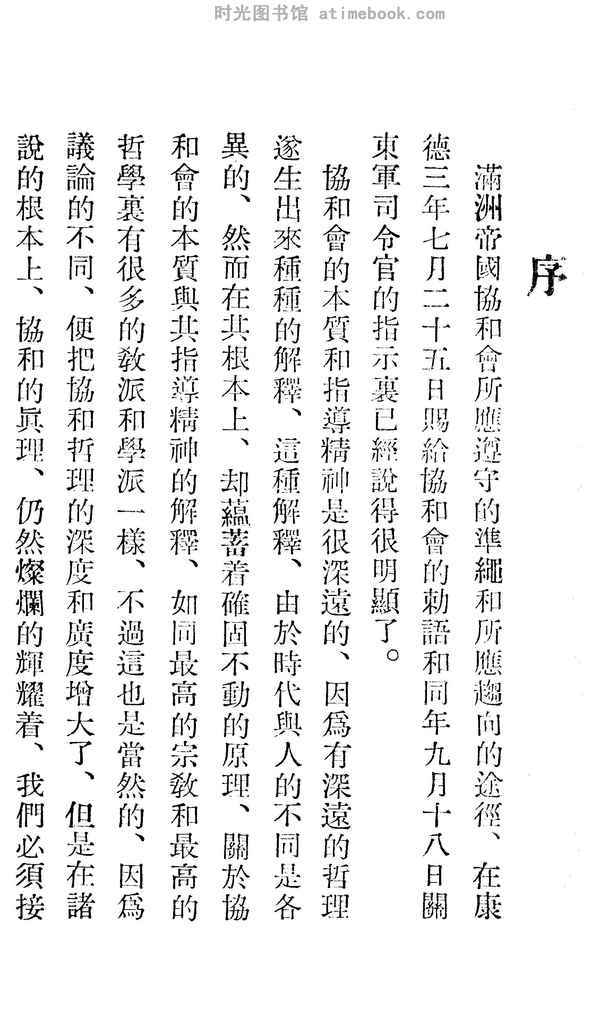 时光图书馆 atimebook.com
序
滿洲帝國協和會所應遵守的準繩和所應趨向的途徑、在康
德三年七月二十五日賜給協和會的勅語和同年九月十八日關
東軍司令官的指示裏已經說得很明顯了。
協和會的本質和指導精神是很深遠的、因爲有深遠的哲理
遂生出來種種的解釋、這種解釋、由於時代與人的不同是各
異的、然而在其根本上、却蘊蓄着確固不動的原理、關於協
和會的本質與其指導精神的解釋、如同最高的宗敎和最高的
哲學裏有很多的敎派和學派一樣、不過這也是當然的、因爲
議論的不同、便把協和哲理的深度和廣度增大了、但是在諸
說的根本上、協和的眞理、仍然燦爛的輝耀着、我們必須接